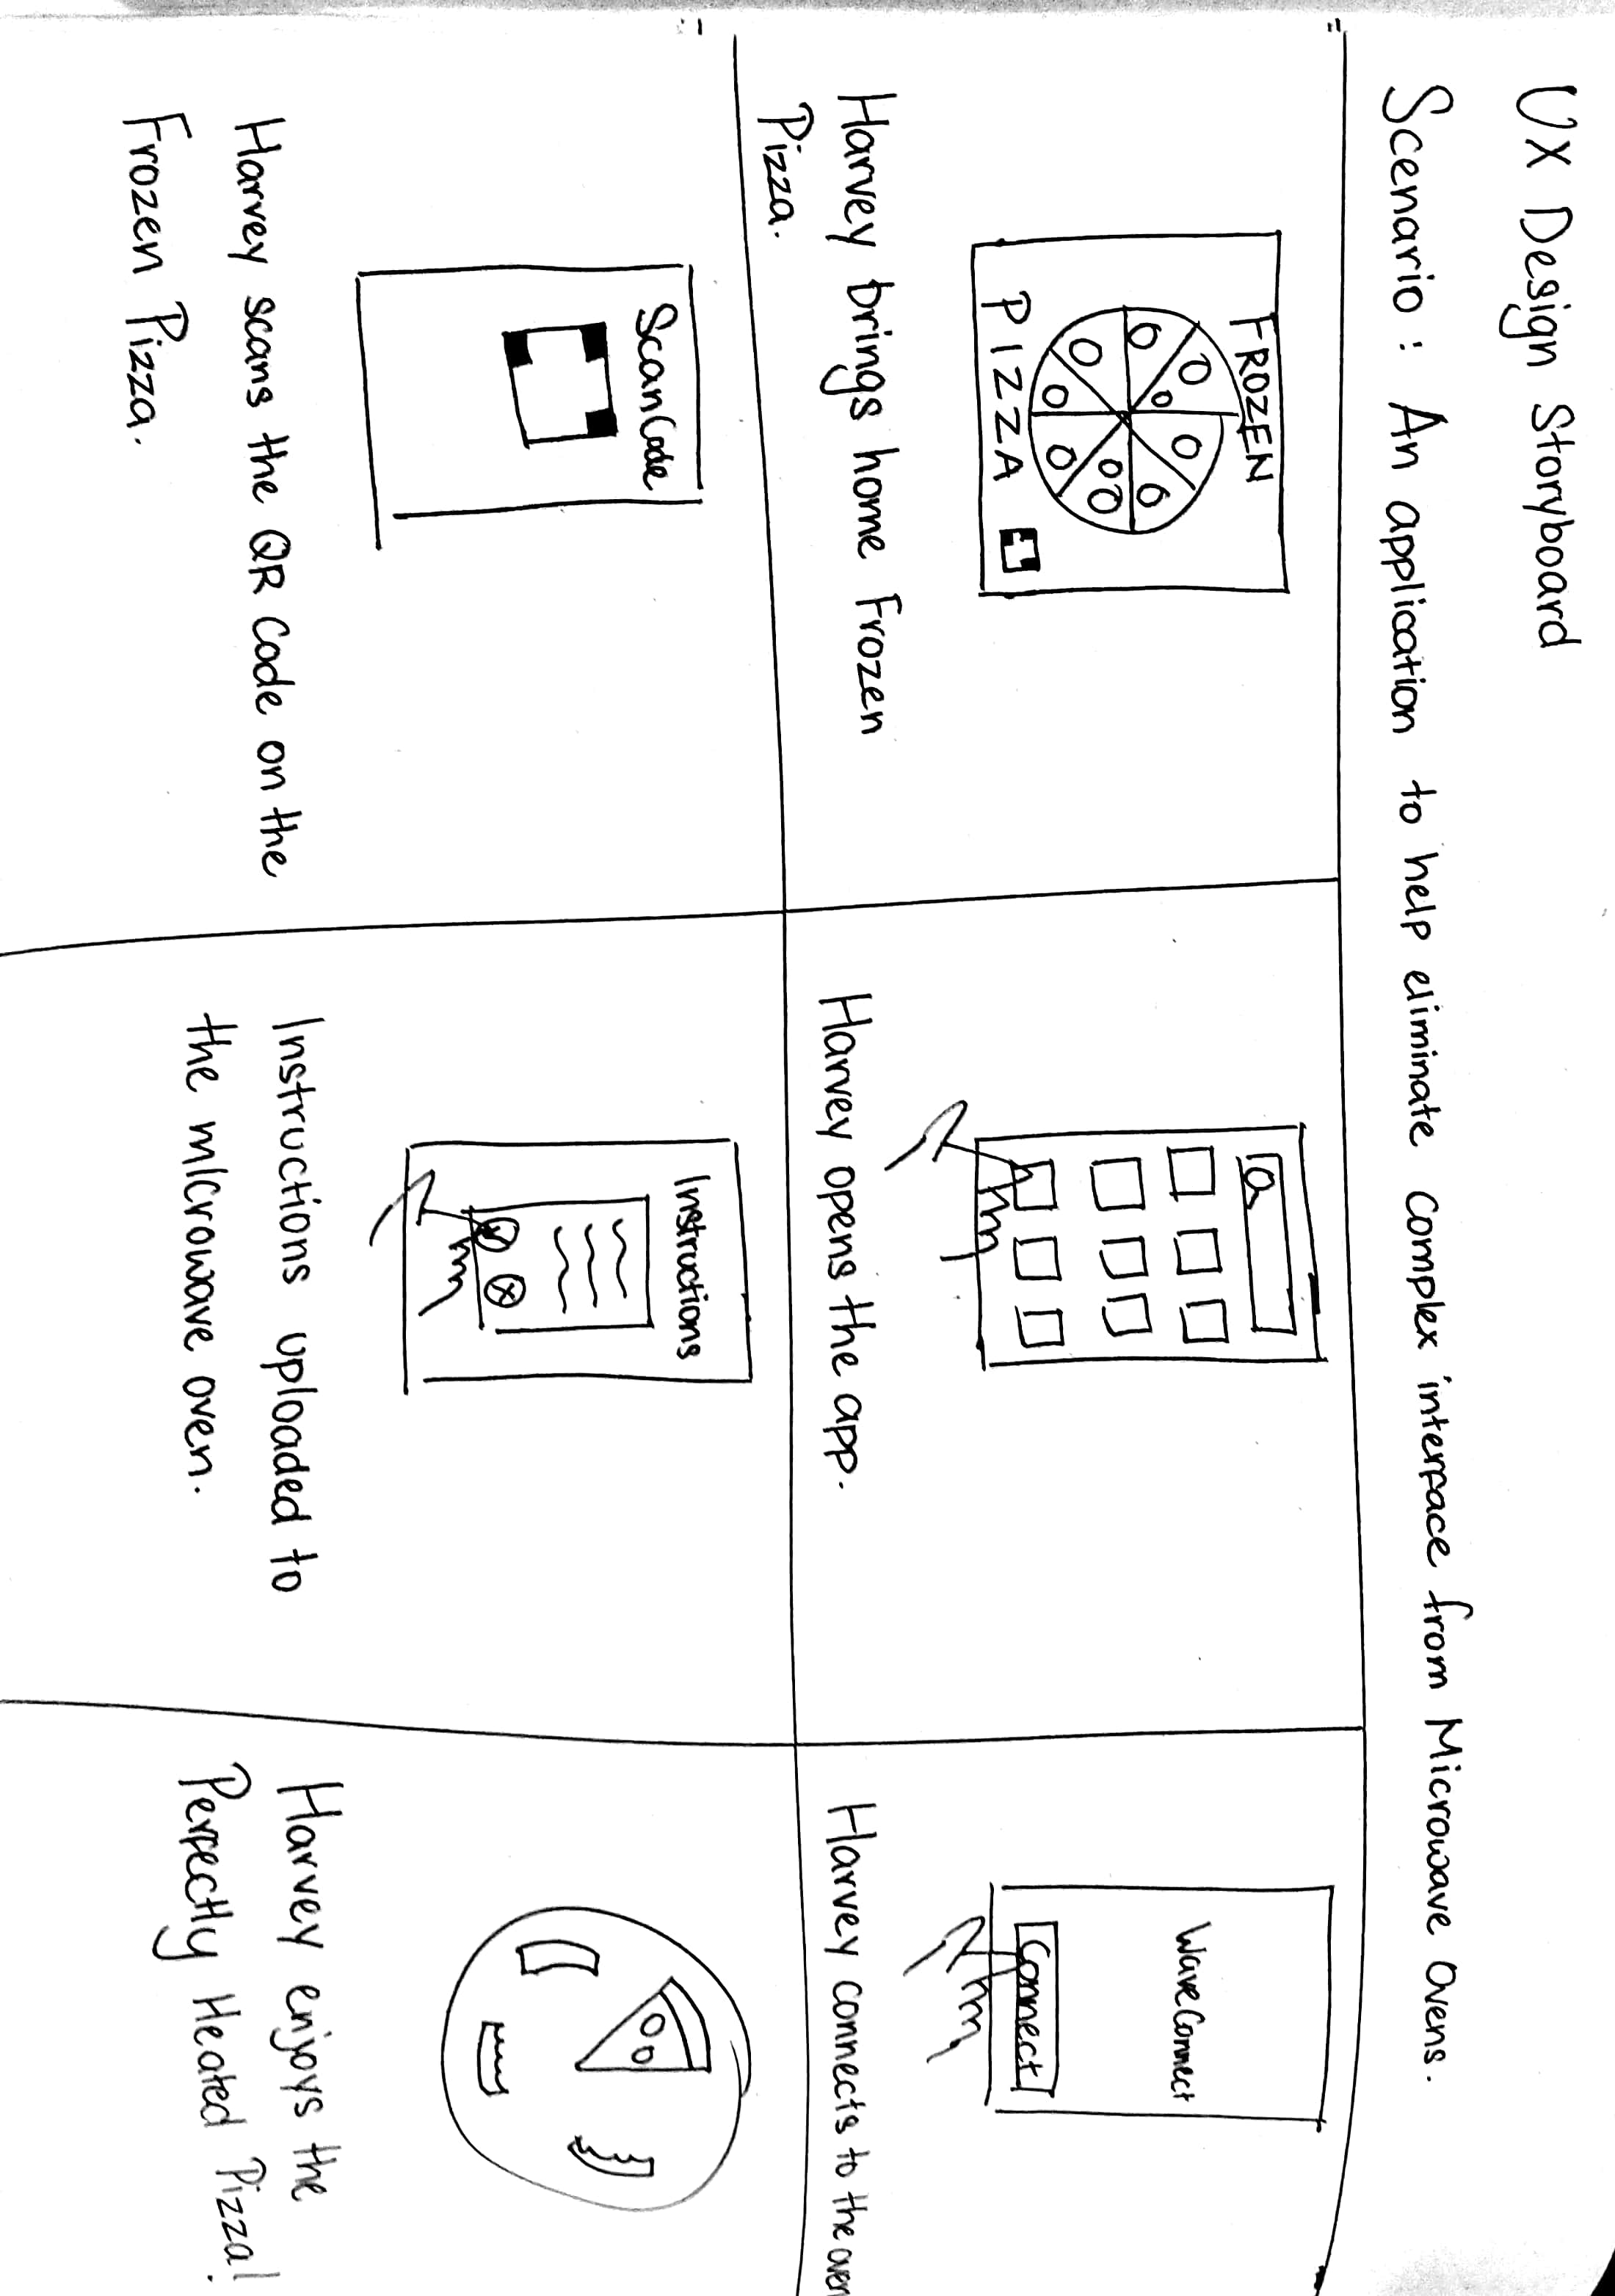 UX Design Storyboard
Scenario : An application to help eliminate complex interface from Microwave Ovens.
FROZEN
PIZZA
Harvey brings home Frozen
Pizza.
Harvey opens the app.
WaveConnect
Connect
Harvey connects to the oven
ScanCode
Harvey scans the QR Code on the
Frozen Pizza.
Instructions
Instructions uploaded to
the microwave oven.
Harvey enjoys the
Perfectly Heated Pizza!